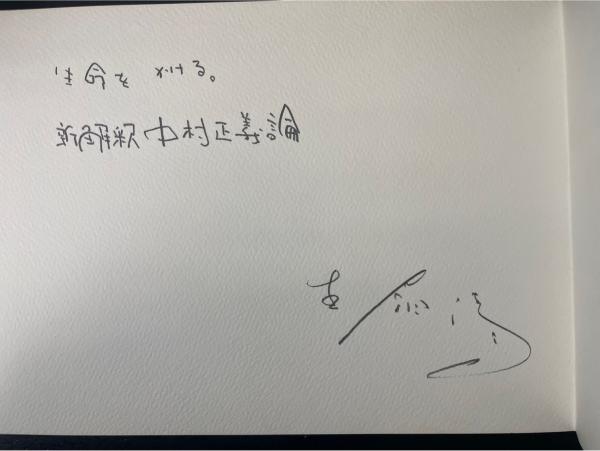 生命を かける。
新解釈 中村正義論